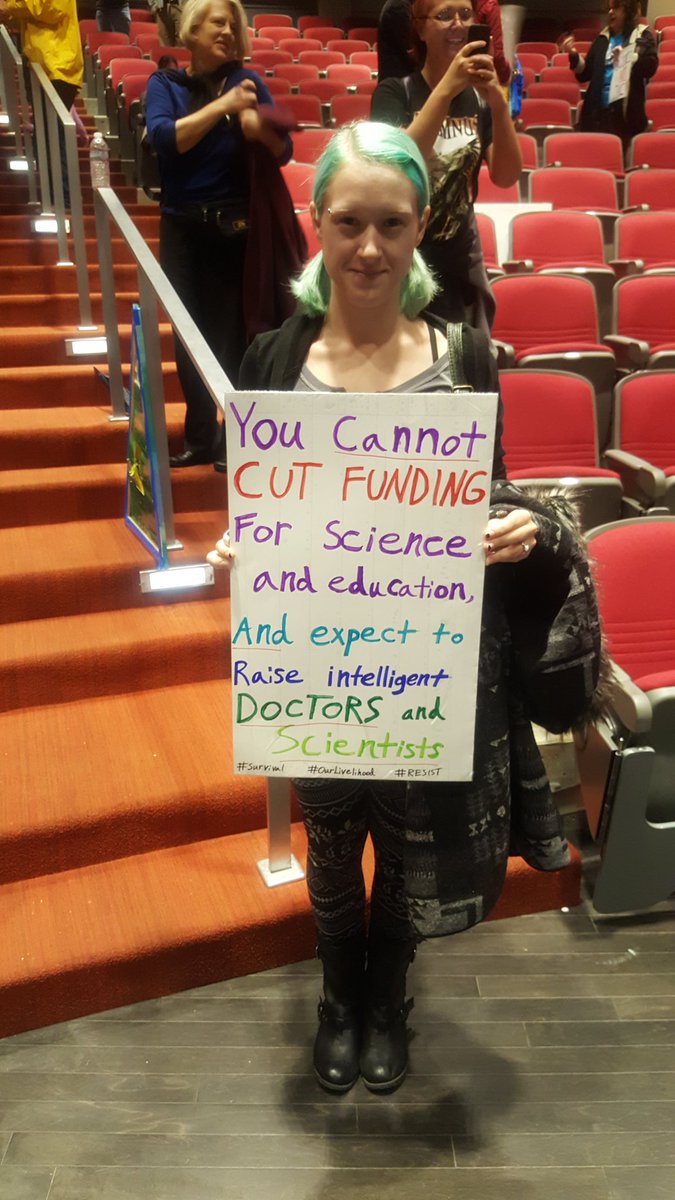 You Cannot
CUT FUNDING
For Science
and education,
And expect to
Raise intelligent
DOCTORS and
Scientists
#Survival #OurLivelihood #RESIST